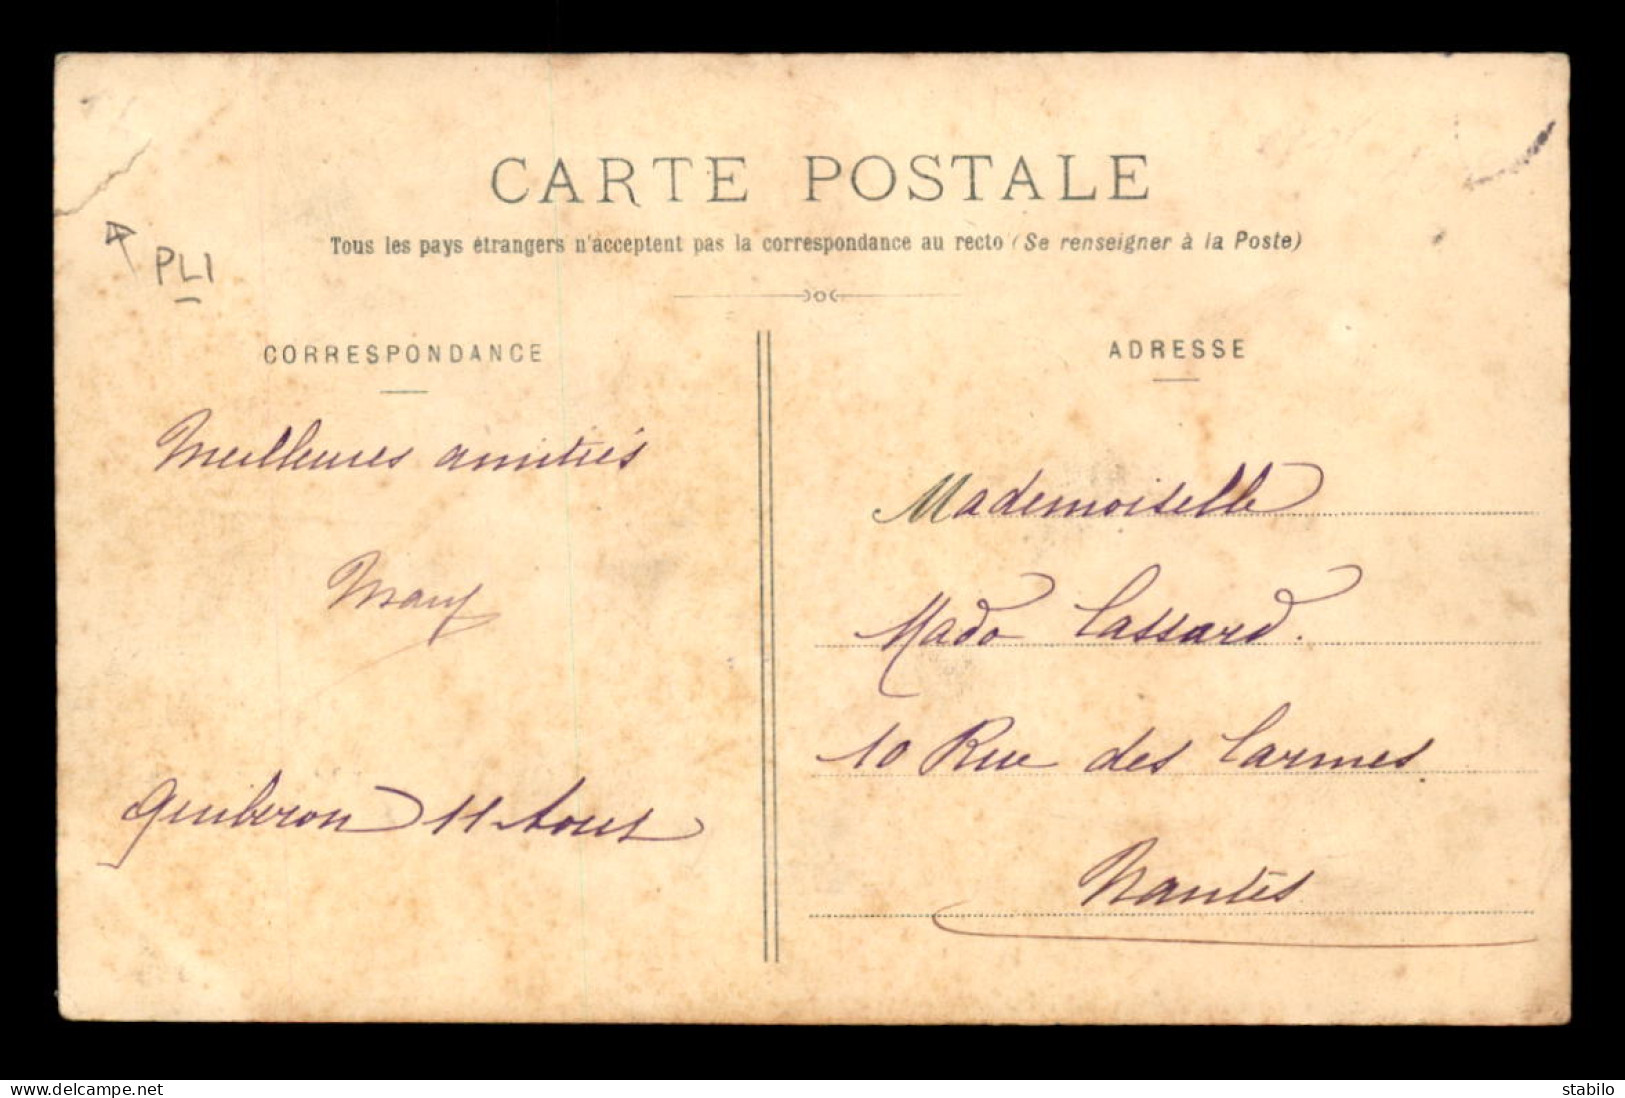 CARTE POSTALE
Tous les pays étrangers n'acceptent pas la correspondance au recto (Se renseigner à la Poste)
PLI
CORRESPONDANCE
Meilleures amitiés
Many
Quiberon 11 Aout
ADRESSE
Mademoiselle
Mado Cassard.
10 Rue des Carmes.
Nantes
www.delcampe.net
stabilo